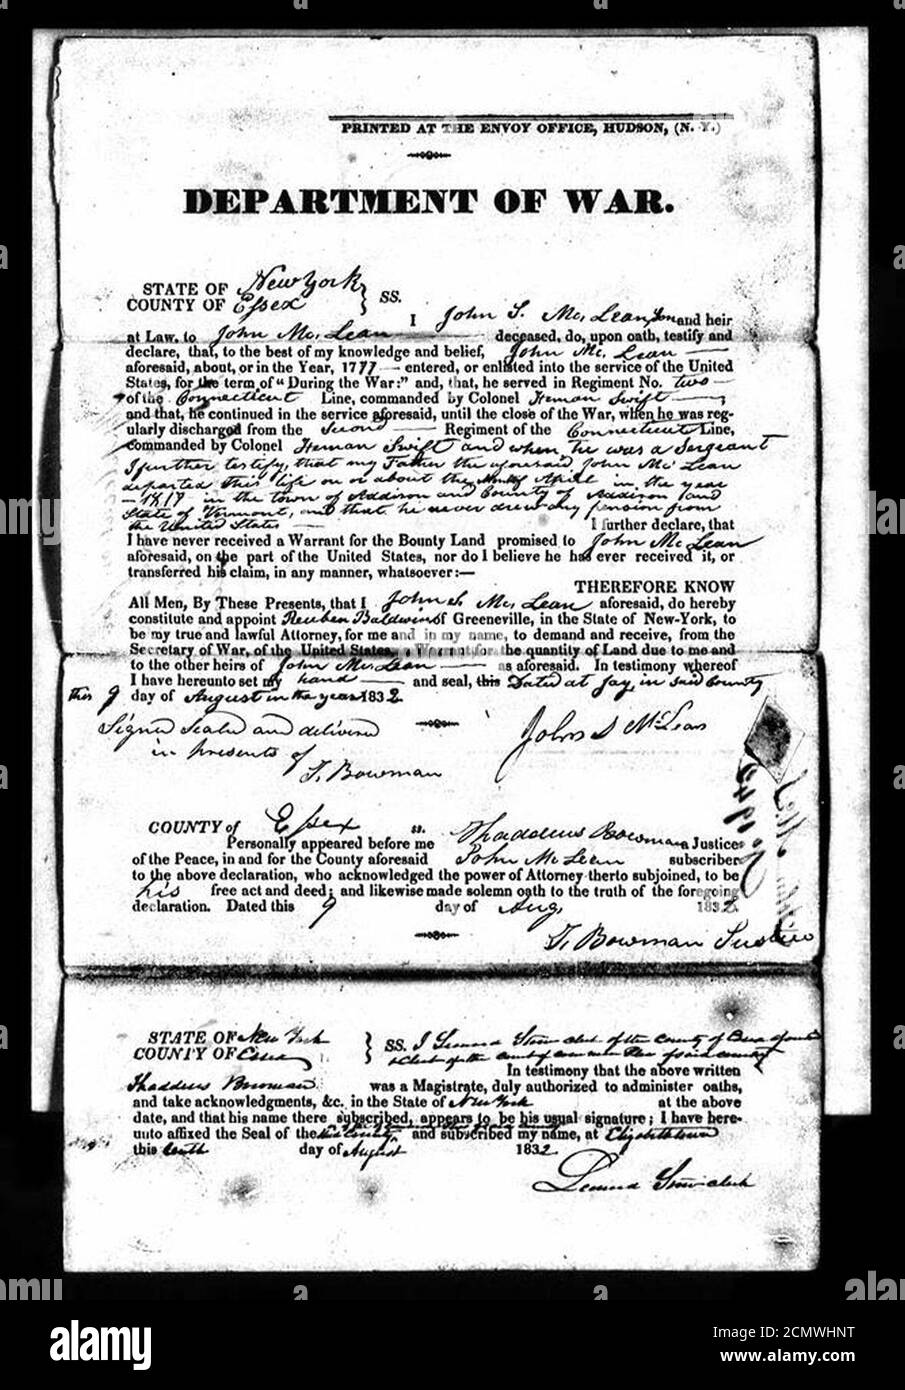 PRINTED AT THE ENVOY OFFICE, HUDSON, (N. Y.)
DEPARTMENT OF WAR.
STATE OF New York
COUNTY OF Essex } SS.
I John S. Mc. Lean Son and heir
at Law, to John Mc. Lean deceased, do, upon oath, testify and
declare, that, to the best of my knowledge and belief, John Mc. Lean
aforesaid, about, or in the Year, 1777 entered, or enlisted into the service of the United
States, for the term of "During the War:" and, that, he served in Regiment No. two
of the Connecticut Line, commanded by Colonel Heman Swift
and that, he continued in the service aforesaid, until the close of the War, when he was reg-
ularly discharged from the Second Regiment of the Connecticut Line,
commanded by Colonel Heman Swift and when he was a Sergeant
I further testify, that my Father the aforesaid, John Mc Lean
departed this life on or about the Month of April in the year
1817 in the town of Addison and County of Addison and
State of Vermont, and that he never drew any pension from
the United States I further declare, that
I have never received a Warrant for the Bounty Land promised to John Mc Lean
aforesaid, on the part of the United States, nor do I believe he has ever received it, or
transferred his claim, in any manner, whatsoever:—
THEREFORE KNOW
All Men, By These Presents, that I John S. Mc. Lean aforesaid, do hereby
constitute and appoint Reuben Baldwin of Greeneville, in the State of New-York, to
be my true and lawful Attorney, for me and in my name, to demand and receive, from the
Secretary of War, of the United States, a Warrant for the quantity of Land due to me and
to the other heirs of John Mc Lean as aforesaid. In testimony whereof
I have hereunto set my hand and seal, this Dated at Jay, in said County
this 9 day of August in the year 1832
Signed Sealed and delivered
in presents of
T. Bowman
John S McLean
COUNTY of Essex ss.
Personally appeared before me Thaddeus Bowman a Justice
of the Peace, in and for the County aforesaid John Mc Lean subscriber
to the above declaration, who acknowledged the power of Attorney therto subjoined, to be
his free act and deed; and likewise made solemn oath to the truth of the foregoing
declaration. Dated this 9 day of Aug, 1832.
T. Bowman Justice
STATE OF New York
COUNTY OF Essex } SS. I clerk of the County of
clerk of the court of common Pleas of said county
In testimony that the above written
Thaddeus Bowman was a Magistrate, duly authorized to administer oaths,
and take acknowledgments, &c. in the State of New York at the above
date, and that his name there subscribed, appears to be his usual signature; I have here-
unto affixed the Seal of the said County, and subscribed my name, at Elizabethtown
this tenth day of August 1832
clerk
alamy
Image ID: 2CMWHNT
www.alamy.com